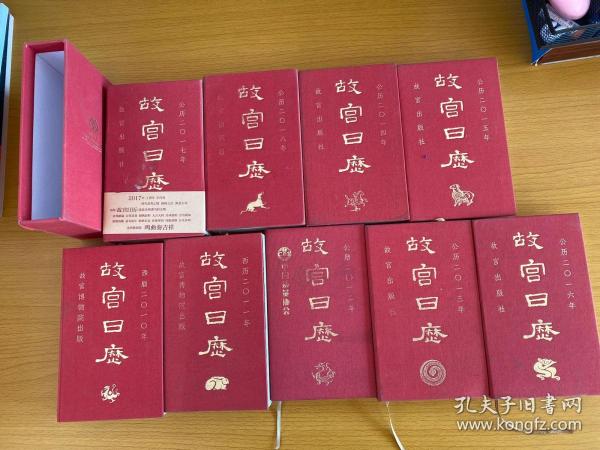 公历二〇一七年
故宫日历
故宫出版社
2017年
故宫日历
公历二〇一八年
故宫日历
公历二〇一四年
故宫日历
故宫出版社
公历二〇一五年
故宫日历
故宫出版社
西历二〇一〇年
故宫日历
故宫博物院出版
西历二〇一一年
故宫日历
故宫博物院出版
公历二〇一二年
故宫日历
公历二〇一三年
故宫日历
故宫出版社
公历二〇一六年
故宫日历
故宫出版社
孔夫子旧书网
www.kongfz.com